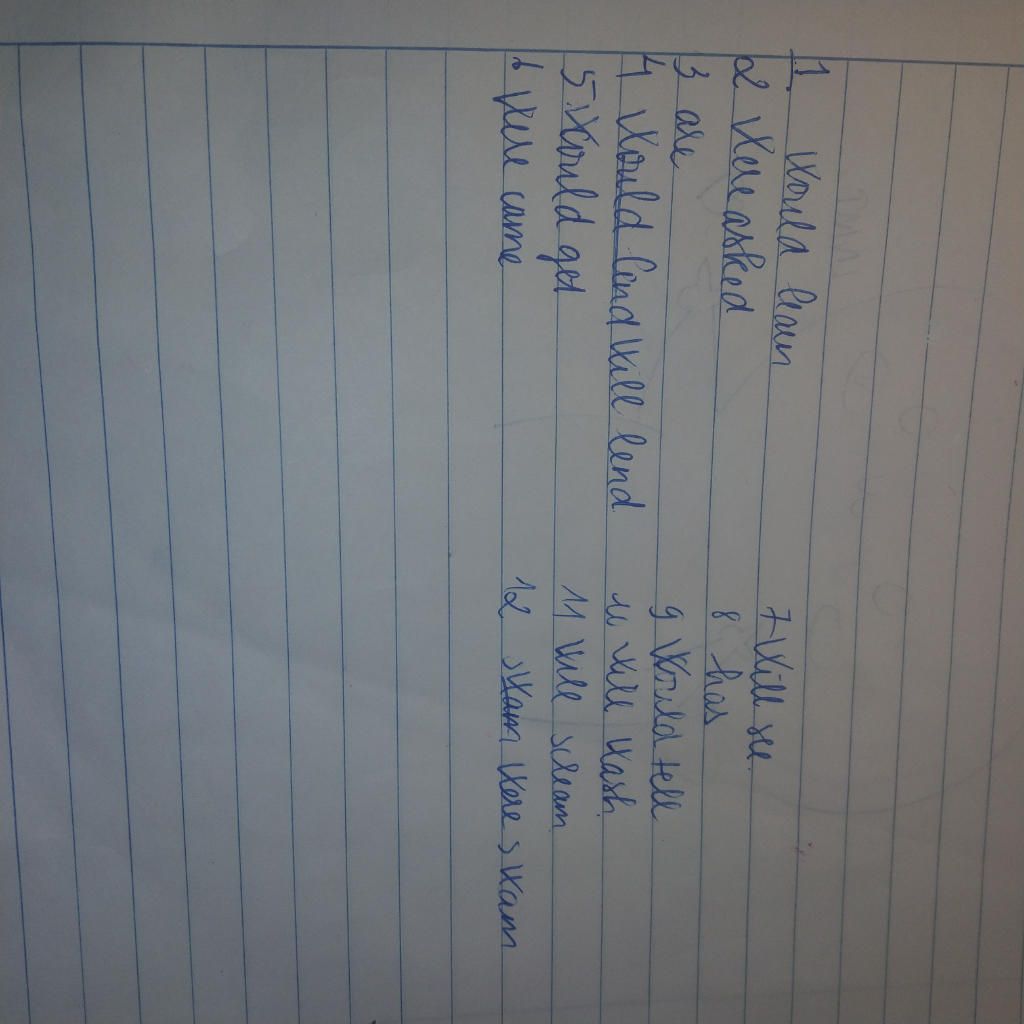 1. Would learn
2 Were asked
3 are
4 Would lend Will lend
5. Would get
6 Were came
7 Will see.
8 has
9 Would tell
10 Will Wash
11 Will scream
12 sWam Were sWam